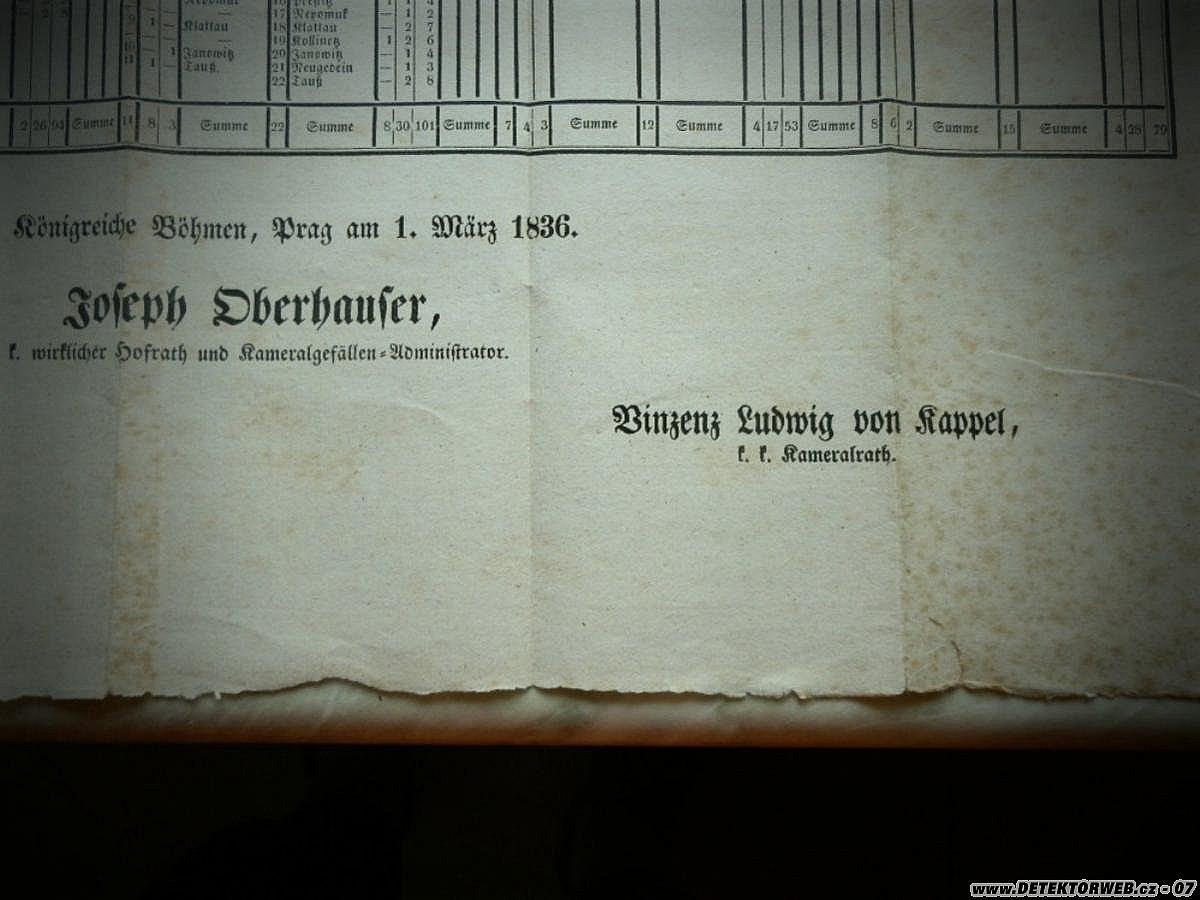 17 Nepomuk — 1 2
— Klattau 18 Klattau — 2 7
— 19 Kollinetz 1 2 6
10 — 1 Janowitz 20 Janowitz — 1 4
11 1 — Tauß. 21 Neugedein — 1 3
22 Tauß — 2 8
2 26 94 Summe 11 8 3 Summe 22 Summe 8 30 101 Summe 7 4 3 Summe 12 Summe 4 17 53 Summe 8 6 2 Summe 15 Summe 4 28 79
Königreiche Böhmen, Prag am 1. März 1836.
Joseph Oberhauser,
k. wirklicher Hofrath und Kameralgefällen-Administrator.
Vinzenz Ludwig von Kappel,
k. k. Kameralrath.
www.DETEKTORWEB.cz - 07